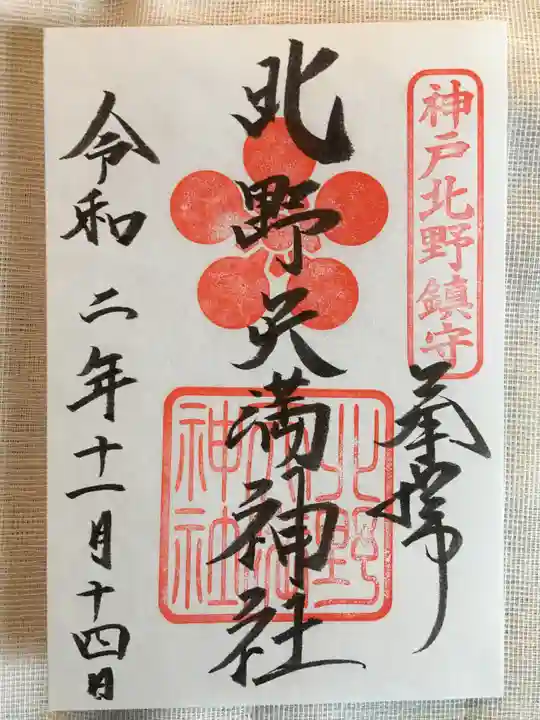 神戸北野鎮守
奉拝
北野天満神社
北野
天満
神社
令和二年十一月十四日